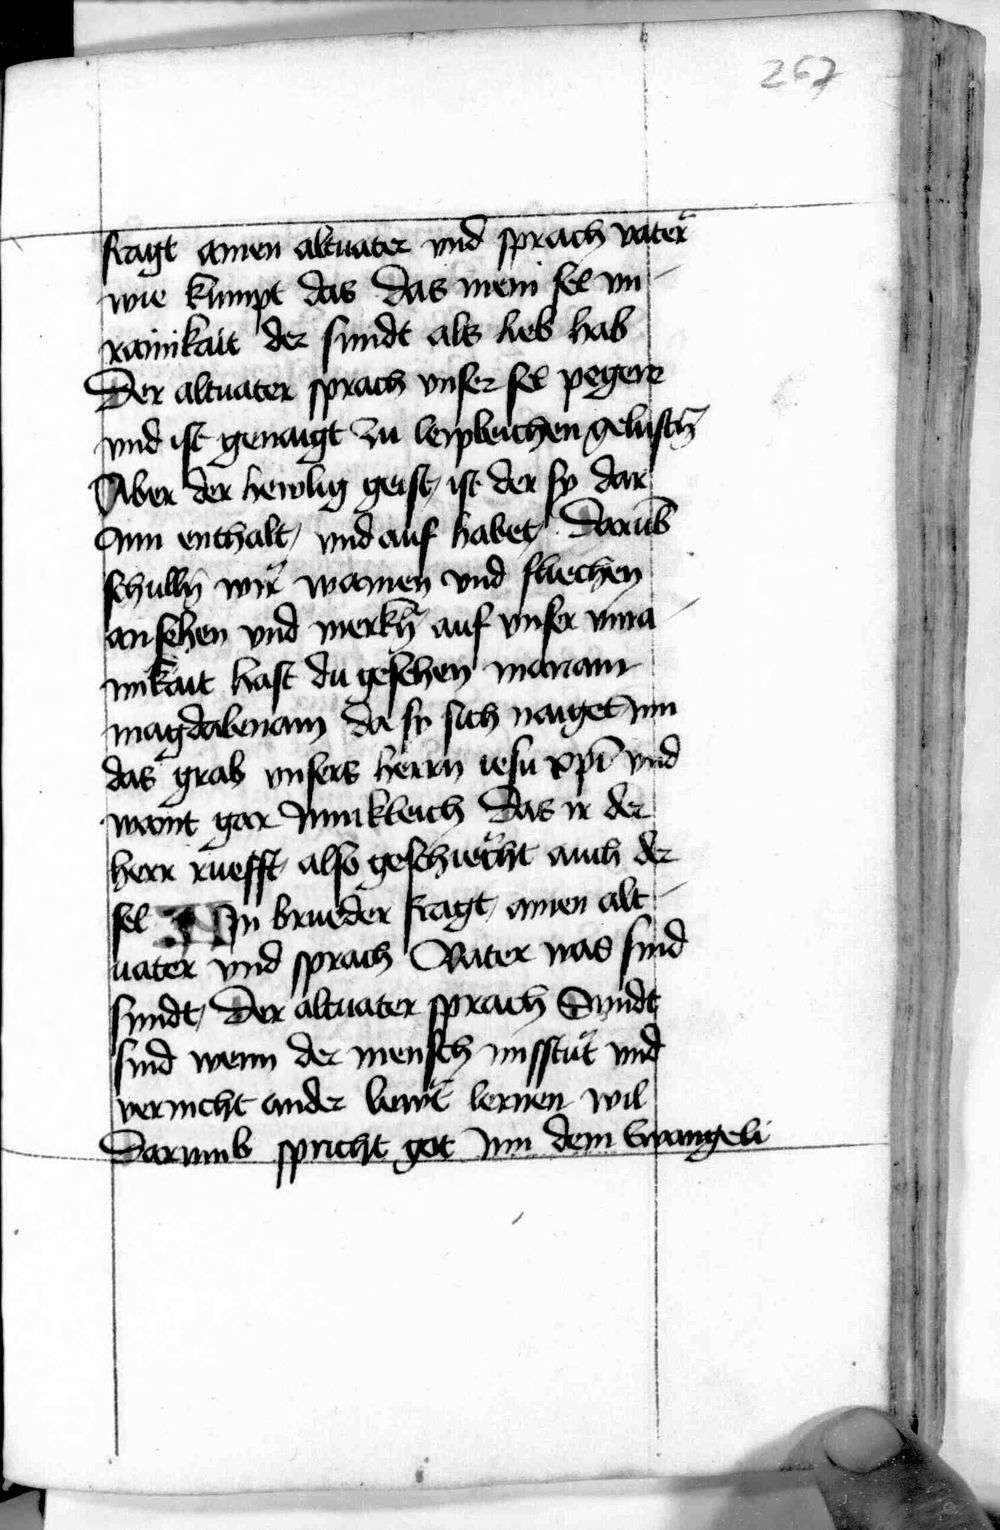 267
fragt ainen altuater vnd sprach vater
wie kumpt das das mein sel vn
rainikait der sundt als lieb hab
Der altuater sprach vnser sel pegert
vnd ist genaigt zu leypleichen gelustn̄
Aber der heylig geist ist der sy dar
Inn enthalt vnd auf habet Darūb
schulln̄ wir wainen vnd fleichen
an sehen vnd merkn̄ auf vnser vnra
inikait hast du gesehen mariam
magdalenam da sy sich naiget Inn
das grab vnsers herrn iesu xp̄i vnd
waint gar Innikleich Das ir der
herr rüefft also geschiecht auch der
sel Ein brueder fragt ainen alt
uater vnd sprach Vater was sind
sundt Der altuater sprach Sundt
sind wenn der mensch misstut vnd
vernicht ander lewt lernen wil
Darumb spricht got Inn dem Ewangeli